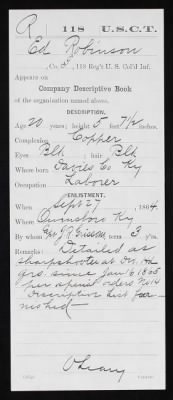 R 118 U.S.C.T.
Ed Robinson
, Co. , 118 Reg't U. S. Col'd Inf.
Appears on
Company Descriptive Book
of the organization named above.
DESCRIPTION.
Age 20 years; height 5 feet 7½ inches.
Complexion Copper
Eyes Blk ; hair Blk
Where born Davies Co Ky
Occupation Laborer
ENLISTMENT.
When Sept 27 , 1864.
Where Owensboro Ky
By whom Capt J R ; term 3 y'rs.
Remarks: Detailed as
sharpshooter at Div. Hd
qrs. since Jan 16 1865
per special orders No 14
Descriptive List fur-
nished
O'Leary
Copyist.